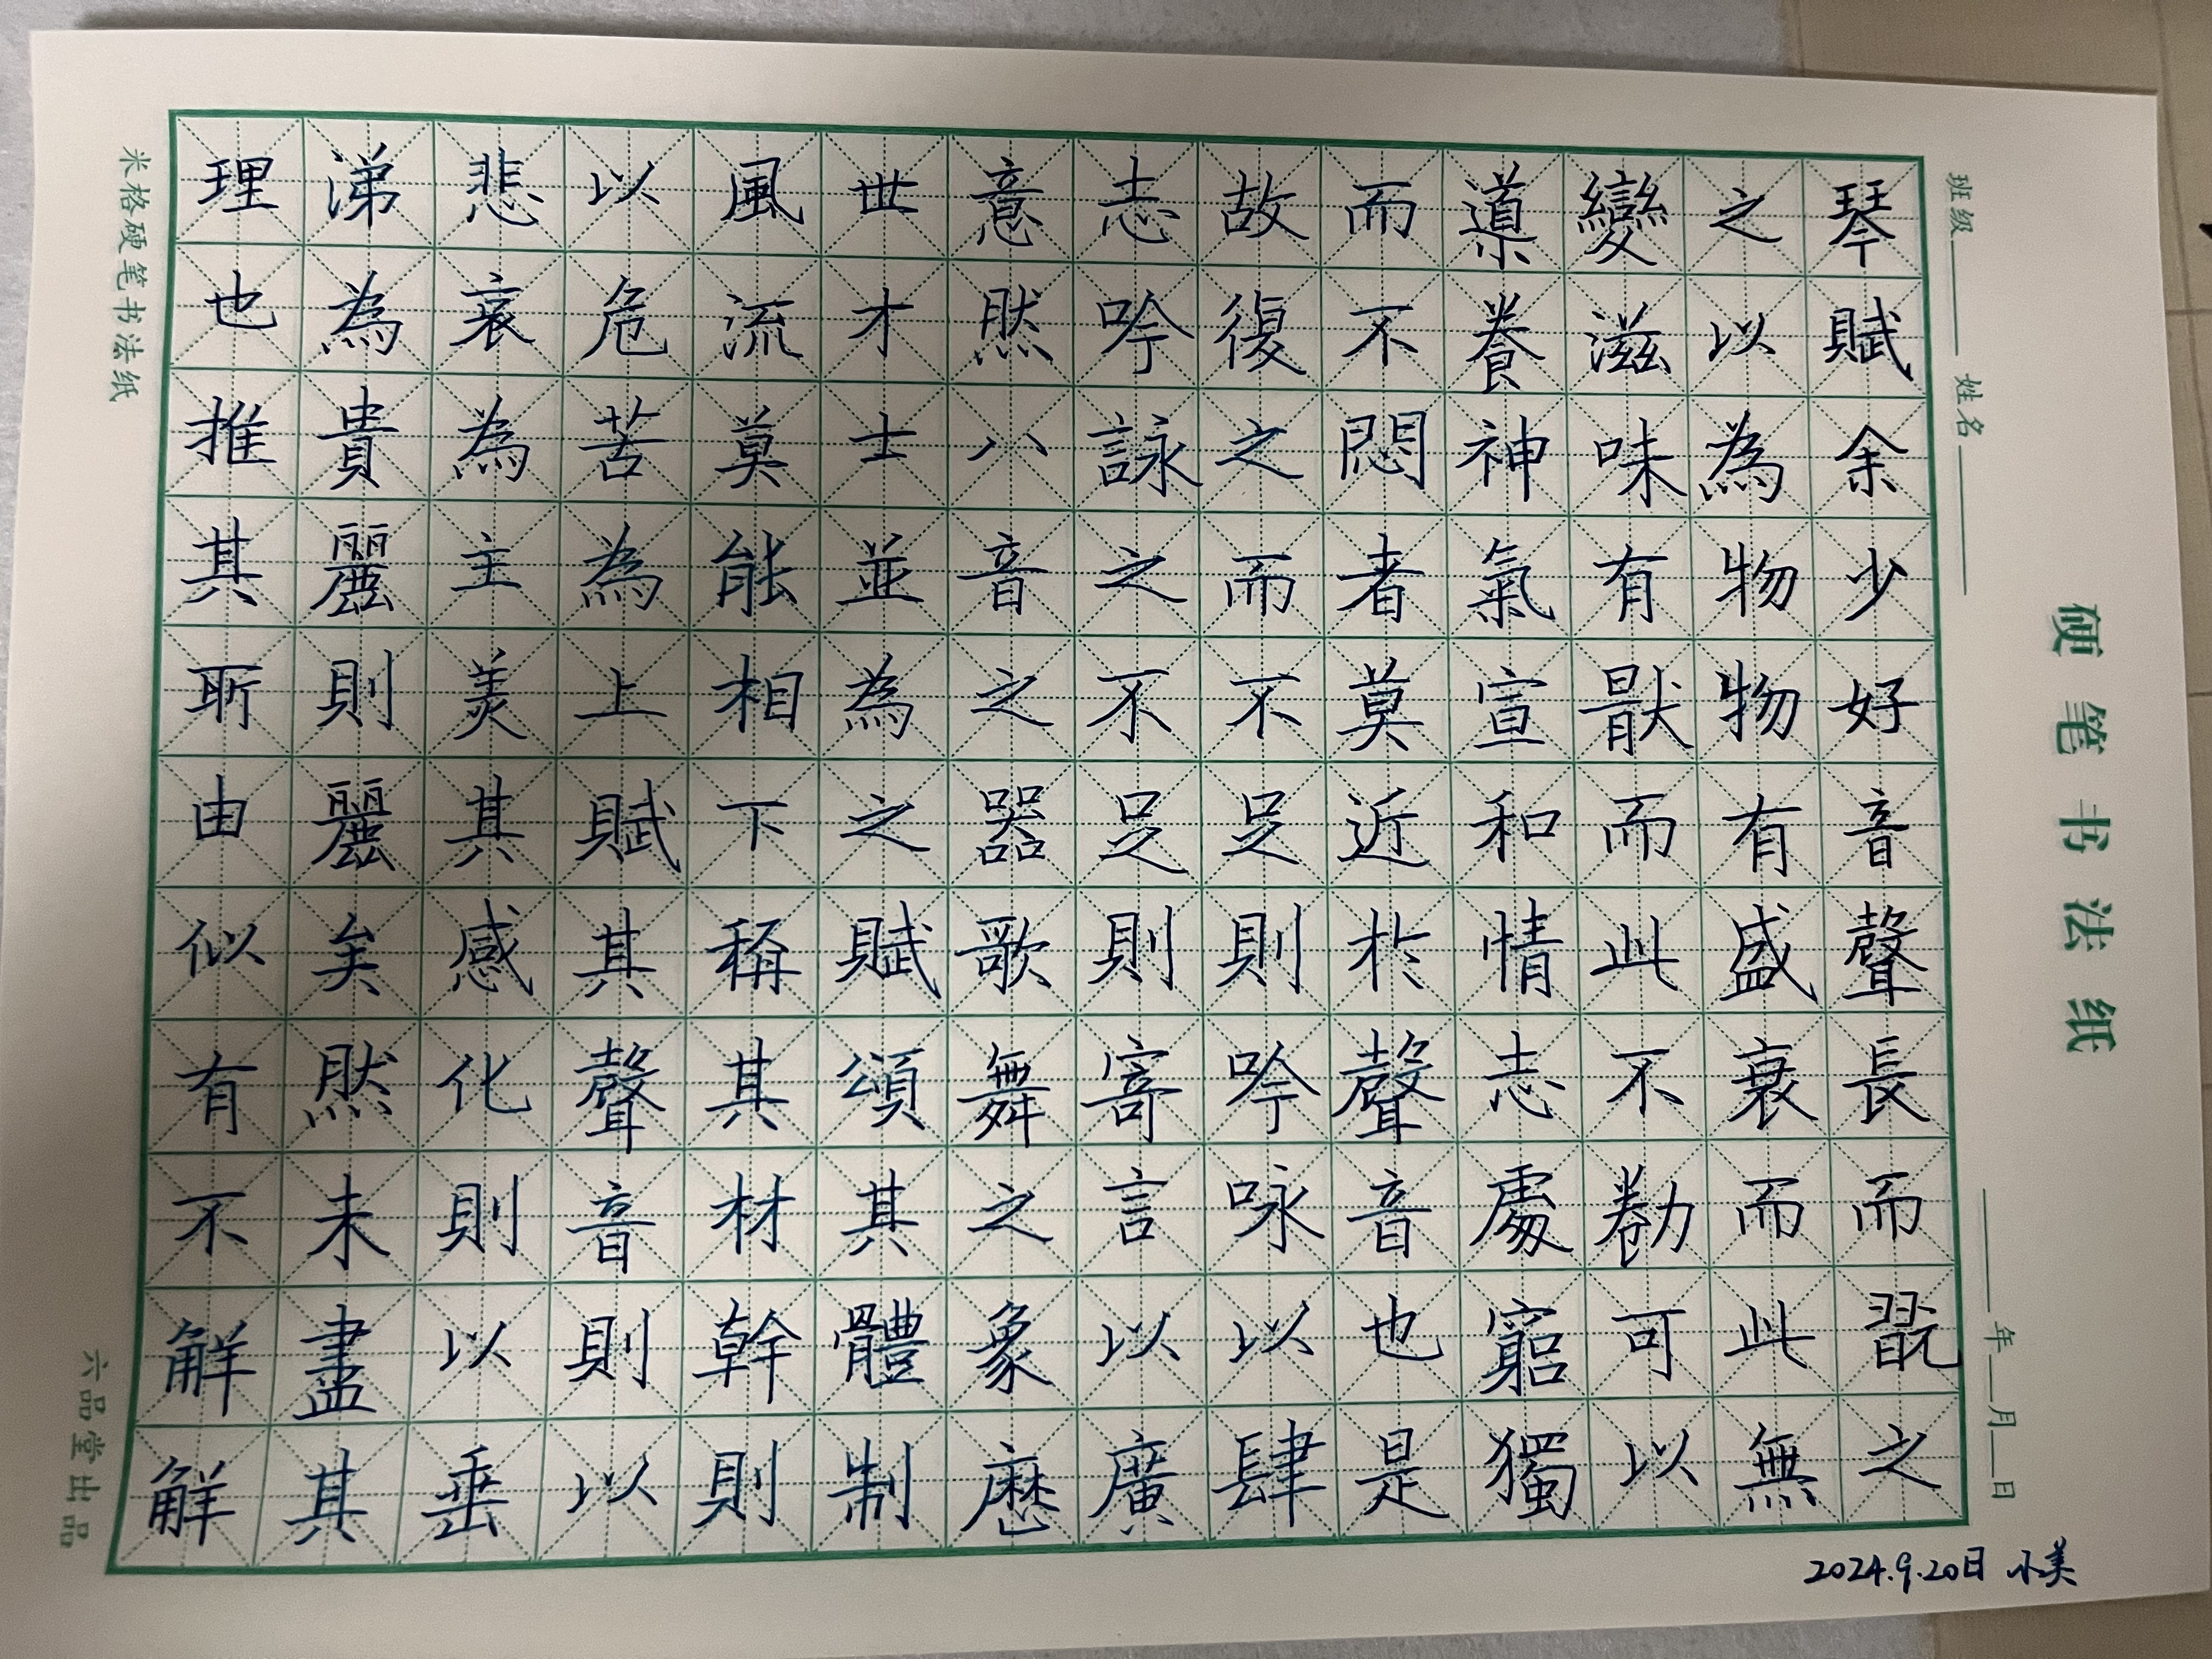 硬笔书法纸
班级 姓名 年 月 日
琴賦余少好音聲長而翫之
之以為物物有盛衰而此無
變滋味有猒而此不勌可以
導養神氣宣和情志處窮獨
而不悶者莫近於聲音也是
故復之而不足則吟詠以肆
志吟詠之不足則寄言以廣
意然八音之器歌舞之象歷
世才士並為之賦頌其體制
風流莫能相下稱其材幹則
以危苦為上賦其聲音則以
悲哀為主美其感化則以垂
涕為貴麗則麗矣然未盡其
理也推其斯由似有不解解
米格硬笔书法纸
六品堂出品
2024.9.20日 小美